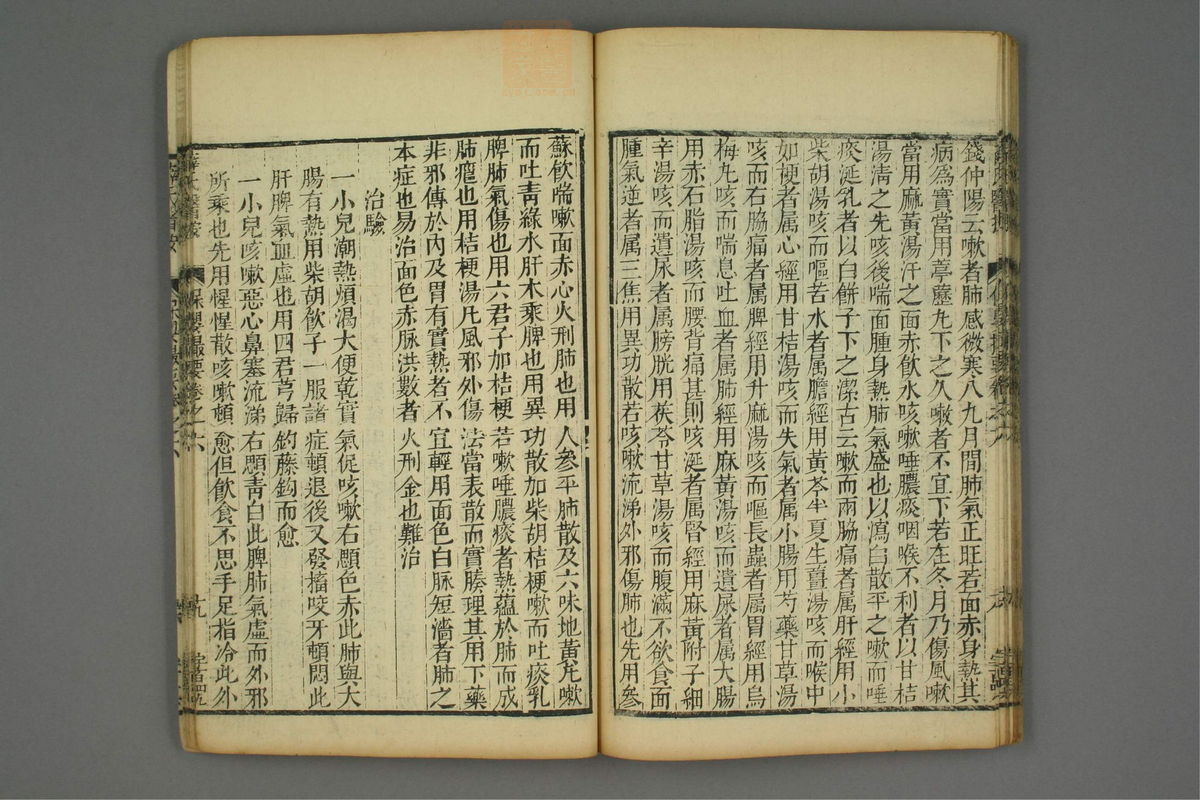 錢仲陽云嗽者肺感微寒八九月間肺氣正旺若面赤身熱其
病為實當用葶藶丸下之久嗽者不宜下若在冬月乃傷風嗽
當用麻黃湯汗之面赤飲水咳嗽唾膿痰咽喉不利者以甘桔
湯清之先咳後喘面腫身熱肺氣盛也以瀉白散平之嗽而唾
痰涎乳者以白餅子下之潔古云嗽而兩脇痛者属肝經用小
柴胡湯咳而嘔苦水者属膽經用黃芩半夏生薑湯咳而喉中
如梗者属心經用甘桔湯咳而失氣者属小腸用芍藥甘草湯
咳而右脇痛者属脾經用升麻湯咳而嘔長蟲者属胃經用烏
梅丸咳而喘息吐血者属肺經用麻黃湯咳而遺屎者属大腸
用赤石脂湯咳而腰背痛甚則咳涎者属腎經用麻黃附子細
辛湯咳而遺尿者属膀胱用茯苓甘草湯咳而腹滿不欲食面
腫氣逆者属三焦用異功散若咳嗽流涕外邪傷肺也先用參
蘇飲喘嗽面赤心火刑肺也用人參平肺散及六味地黃丸嗽
而吐青綠水肝木乘脾也用異功散加柴胡桔梗嗽而吐痰乳
脾肺氣傷也用六君子加桔梗若嗽唾膿痰者熱蘊於肺而成
肺癰也用桔梗湯凡風邪外傷法當表散而實腠理其用下藥
非邪傳於內及胃有實熱者不宜輕用面色白脉短濇者肺之
本症也易治面色赤脉洪數者火刑金也難治
治驗
一小兒潮熱煩渴大便乾實氣促咳嗽右顋色赤此肺與大
腸有熱用柴胡飲子一服諸症頓退後又發搐咬牙頓悶此
肝脾氣血虛也用四君芎歸釣藤鈎而愈
一小兒咳嗽惡心鼻塞流涕右顋青白此脾肺氣虛而外邪
所乘也先用惺惺散咳嗽頓愈但飲食不思手足指冷此外
薛氏醫按
保嬰撮要卷之六